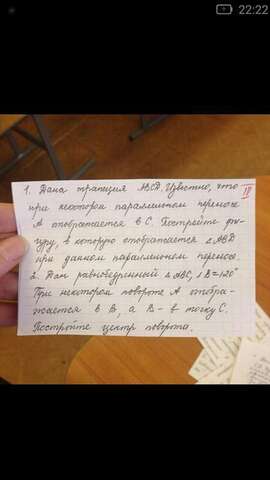 22:22
1. Дана трапеция ABCD. Известно, что
IV
при некотором параллельном переносе
A отображается в C. Постройте фи-
гуру, в которую отображается △ABD
при данном параллельном переносе.
2. Дан равнобедренный △ABC, ∠B=120°
При некотором повороте A отобра-
жается в B, а B - в точку C.
Постройте центр поворота.